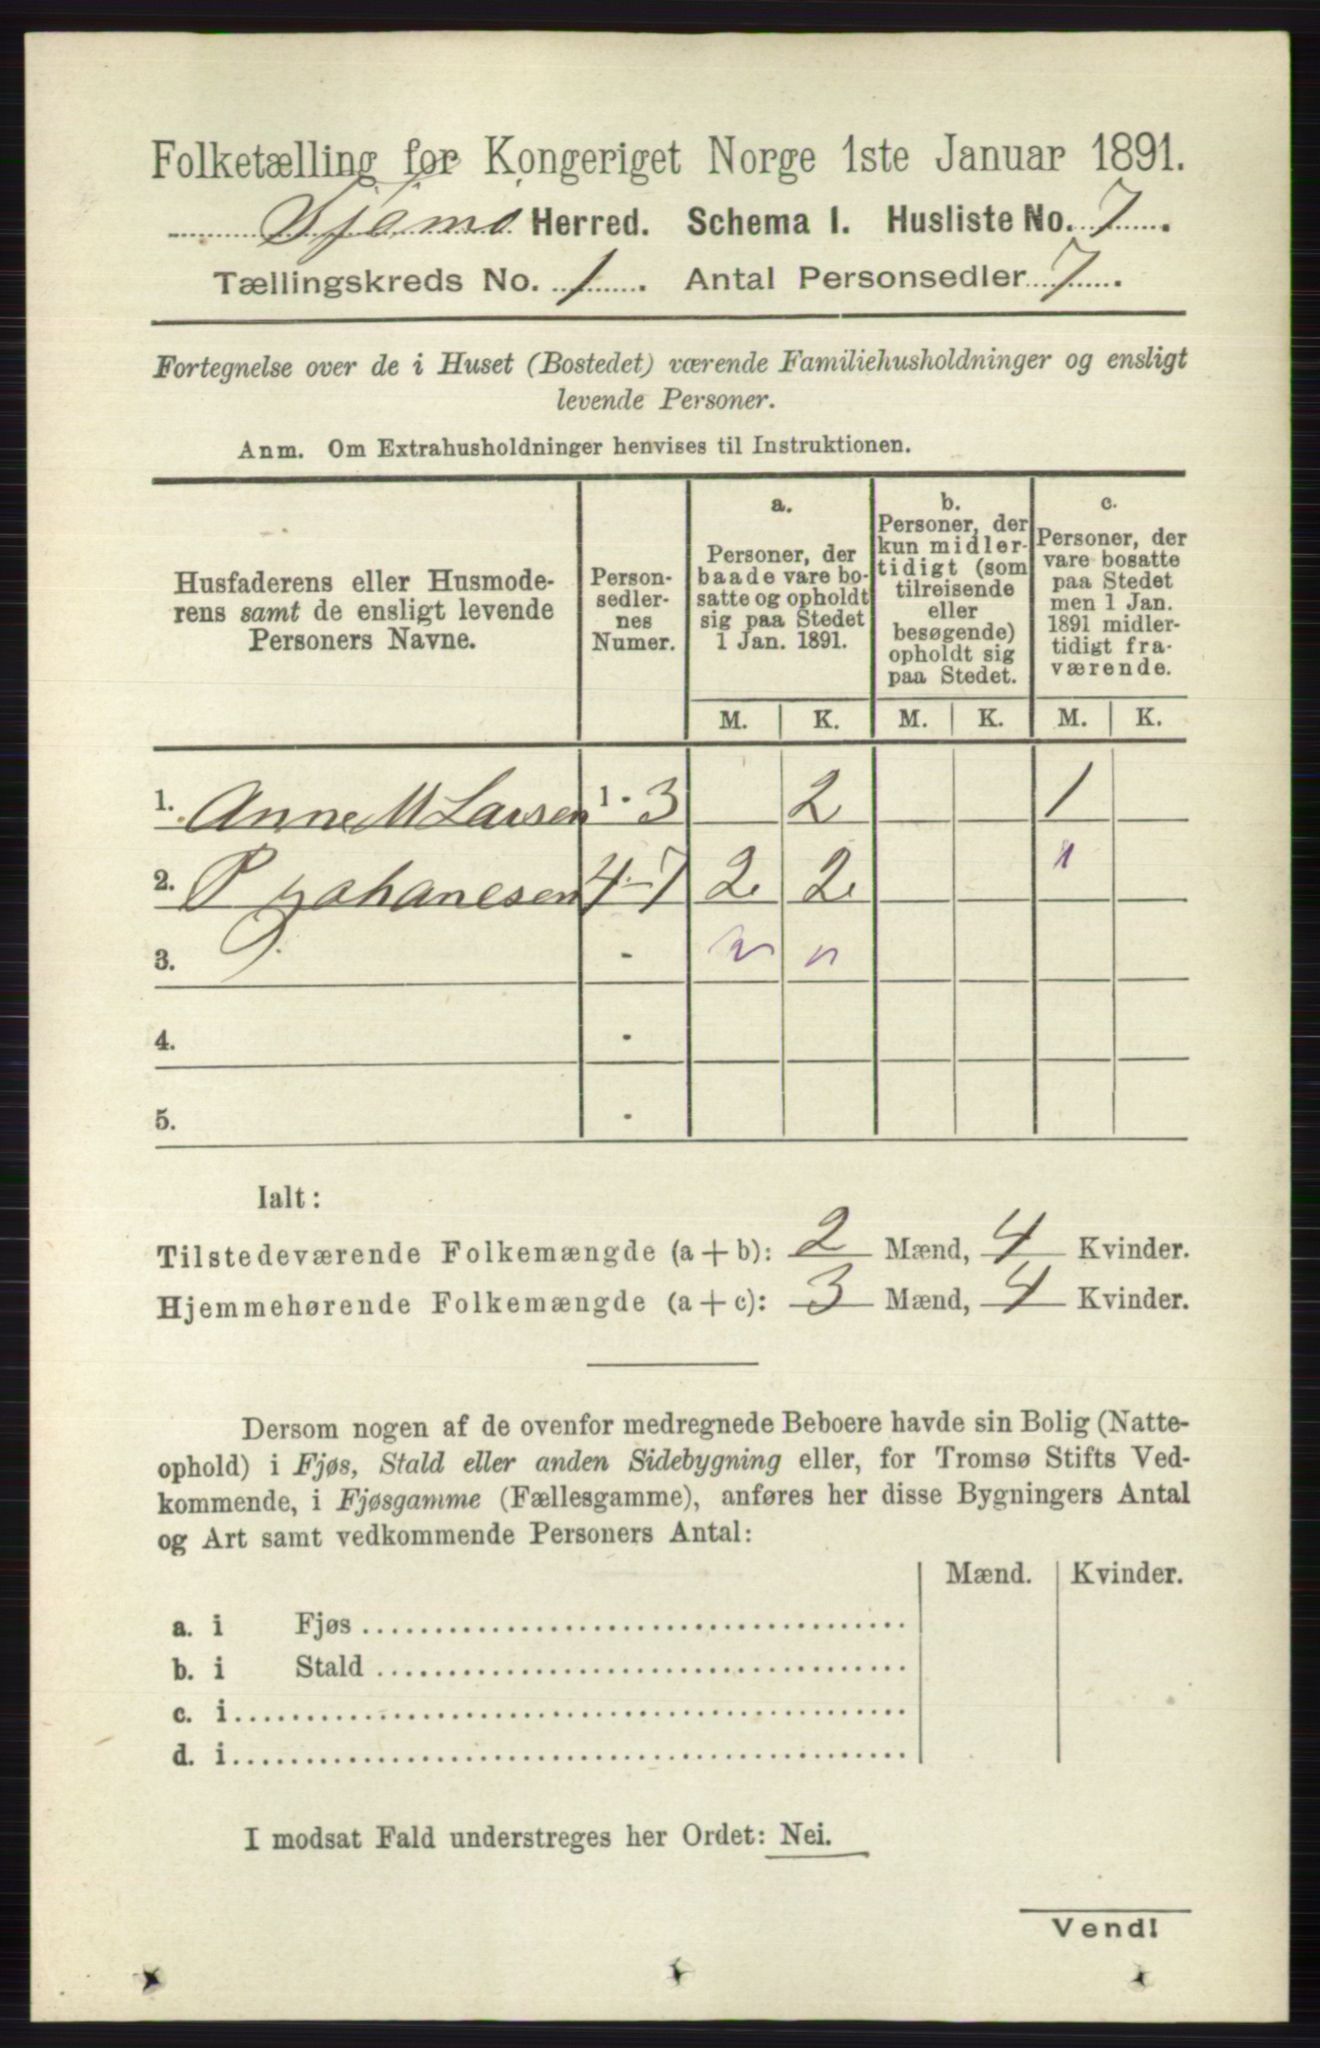 Folketælling for Kongeriget Norge 1ste Januar 1891.
Tjømø Herred. Schema 1. Husliste No. 7.
Tællingskreds No. 1. Antal Personsedler 7.
Fortegnelse over de i Huset (Bostedet) værende Familiehusholdninger og ensligt
levende Personer.
Anm. Om Extrahusholdninger henvises til Instruktionen.
Husfaderens eller Husmode-
rens samt de ensligt levende
Personers Navne.
Person-
sedler-
nes
Numer.
a.
Personer, der
baade vare bo-
satte og opholdt
sig paa Stedet
1 Jan. 1891.
b.
Personer, der
kun midler-
tidigt (som
tilreisende
eller
besøgende)
opholdt sig
paa Stedet.
c.
Personer, der
vare bosatte
paa Stedet
men 1 Jan.
1891 midler-
tidigt fra-
værende.
M. K. M. K. M. K.
1. Anne M Larsen 1 - 3 2 1
2. P Johanesen 4-7 2 2 1
3. -
4. -
5. -
Ialt:
Tilstedeværende Folkemængde (a + b): 2 Mænd, 4 Kvinder.
Hjemmehørende Folkemængde (a + c): 3 Mænd, 4 Kvinder.
Dersom nogen af de ovenfor medregnede Beboere havde sin Bolig (Natte-
ophold) i Fjøs, Stald eller anden Sidebygning eller, for Tromsø Stifts Ved-
kommende, i Fjøsgamme (Fællesgamme), anføres her disse Bygningers Antal
og Art samt vedkommende Personers Antal:
Mænd. Kvinder.
a. i Fjøs
b. i Stald
c. i
d. i
I modsat Fald understreges her Ordet: Nei.
Vend!